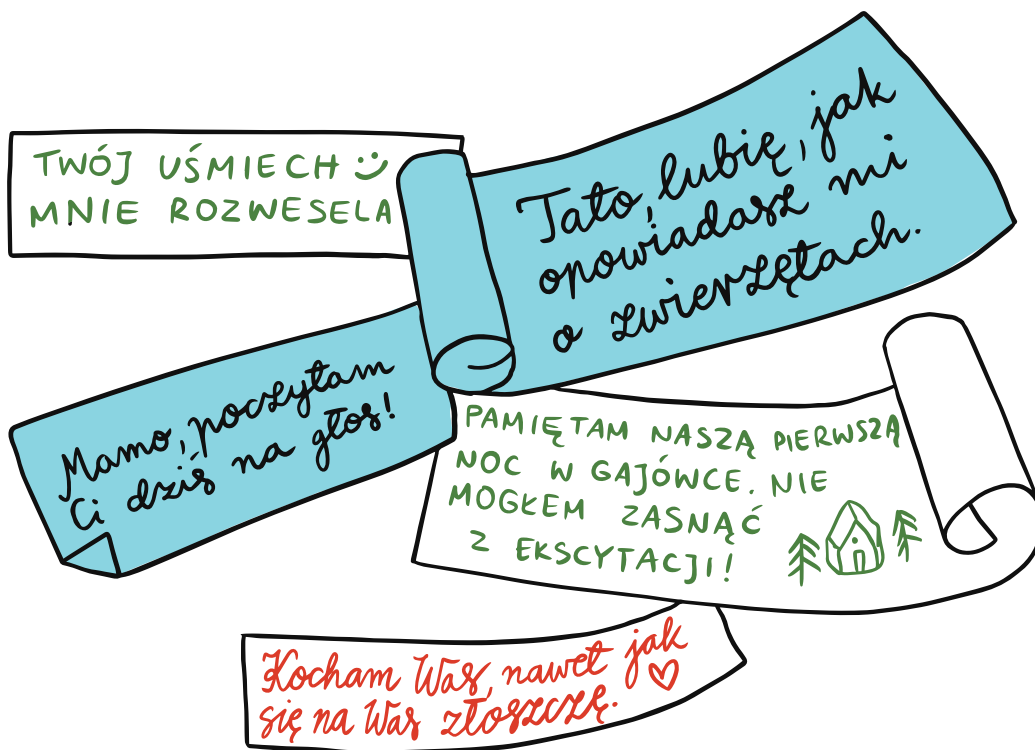 TWÓJ UŚMIECH
MNIE ROZWESELA
Tato, lubię, jak
opowiadasz mi
o zwierzętach.
Mamo, poczytam
Ci dziś na głos!
PAMIĘTAM NASZĄ PIERWSZĄ
NOC W GAJÓWCE. NIE
MOGŁEM ZASNĄĆ
Z EKSCYTACJI!
Kocham Was, nawet jak
się na Was złoszczę.